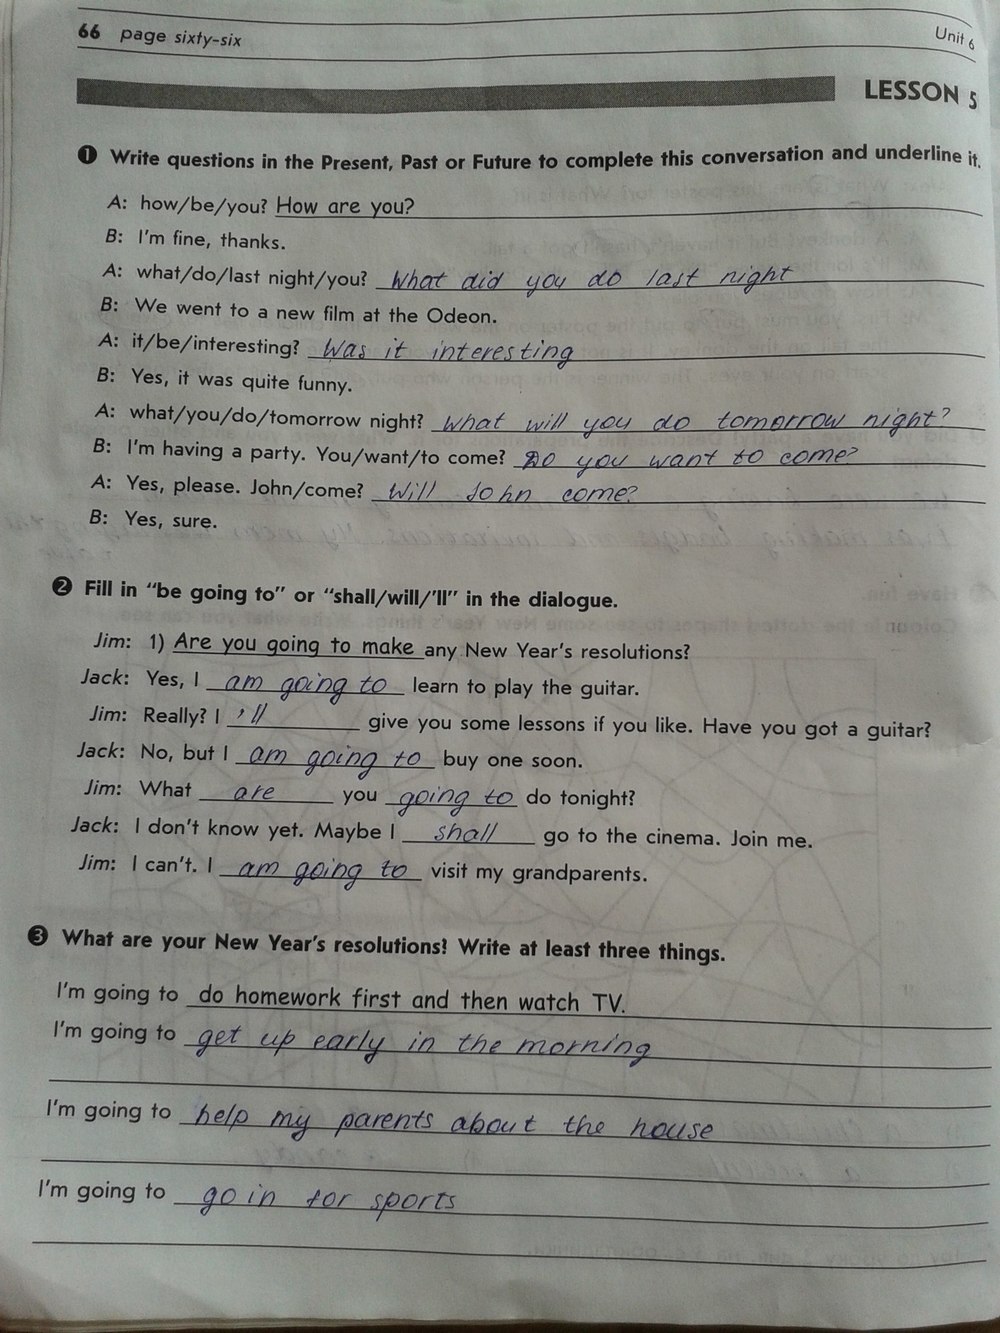 66 page sixty-six
Unit 6
LESSON 5
❶ Write questions in the Present, Past or Future to complete this conversation and underline it.
A: how/be/you? How are you?
B: I'm fine, thanks.
A: what/do/last night/you? What did you do last night
B: We went to a new film at the Odeon.
A: it/be/interesting? Was it interesting
B: Yes, it was quite funny.
A: what/you/do/tomorrow night? What will you do tomorrow night?
B: I'm having a party. You/want/to come? Do you want to come?
A: Yes, please. John/come? Will John come?
B: Yes, sure.
❷ Fill in "be going to" or "shall/will/'ll" in the dialogue.
Jim: 1) Are you going to make any New Year's resolutions?
Jack: Yes, I am going to learn to play the guitar.
Jim: Really? I 'll give you some lessons if you like. Have you got a guitar?
Jack: No, but I am going to buy one soon.
Jim: What are you going to do tonight?
Jack: I don't know yet. Maybe I shall go to the cinema. Join me.
Jim: I can't. I am going to visit my grandparents.
❸ What are your New Year's resolutions? Write at least three things.
I'm going to do homework first and then watch TV.
I'm going to get up early in the morning
I'm going to help my parents about the house
I'm going to go in for sports